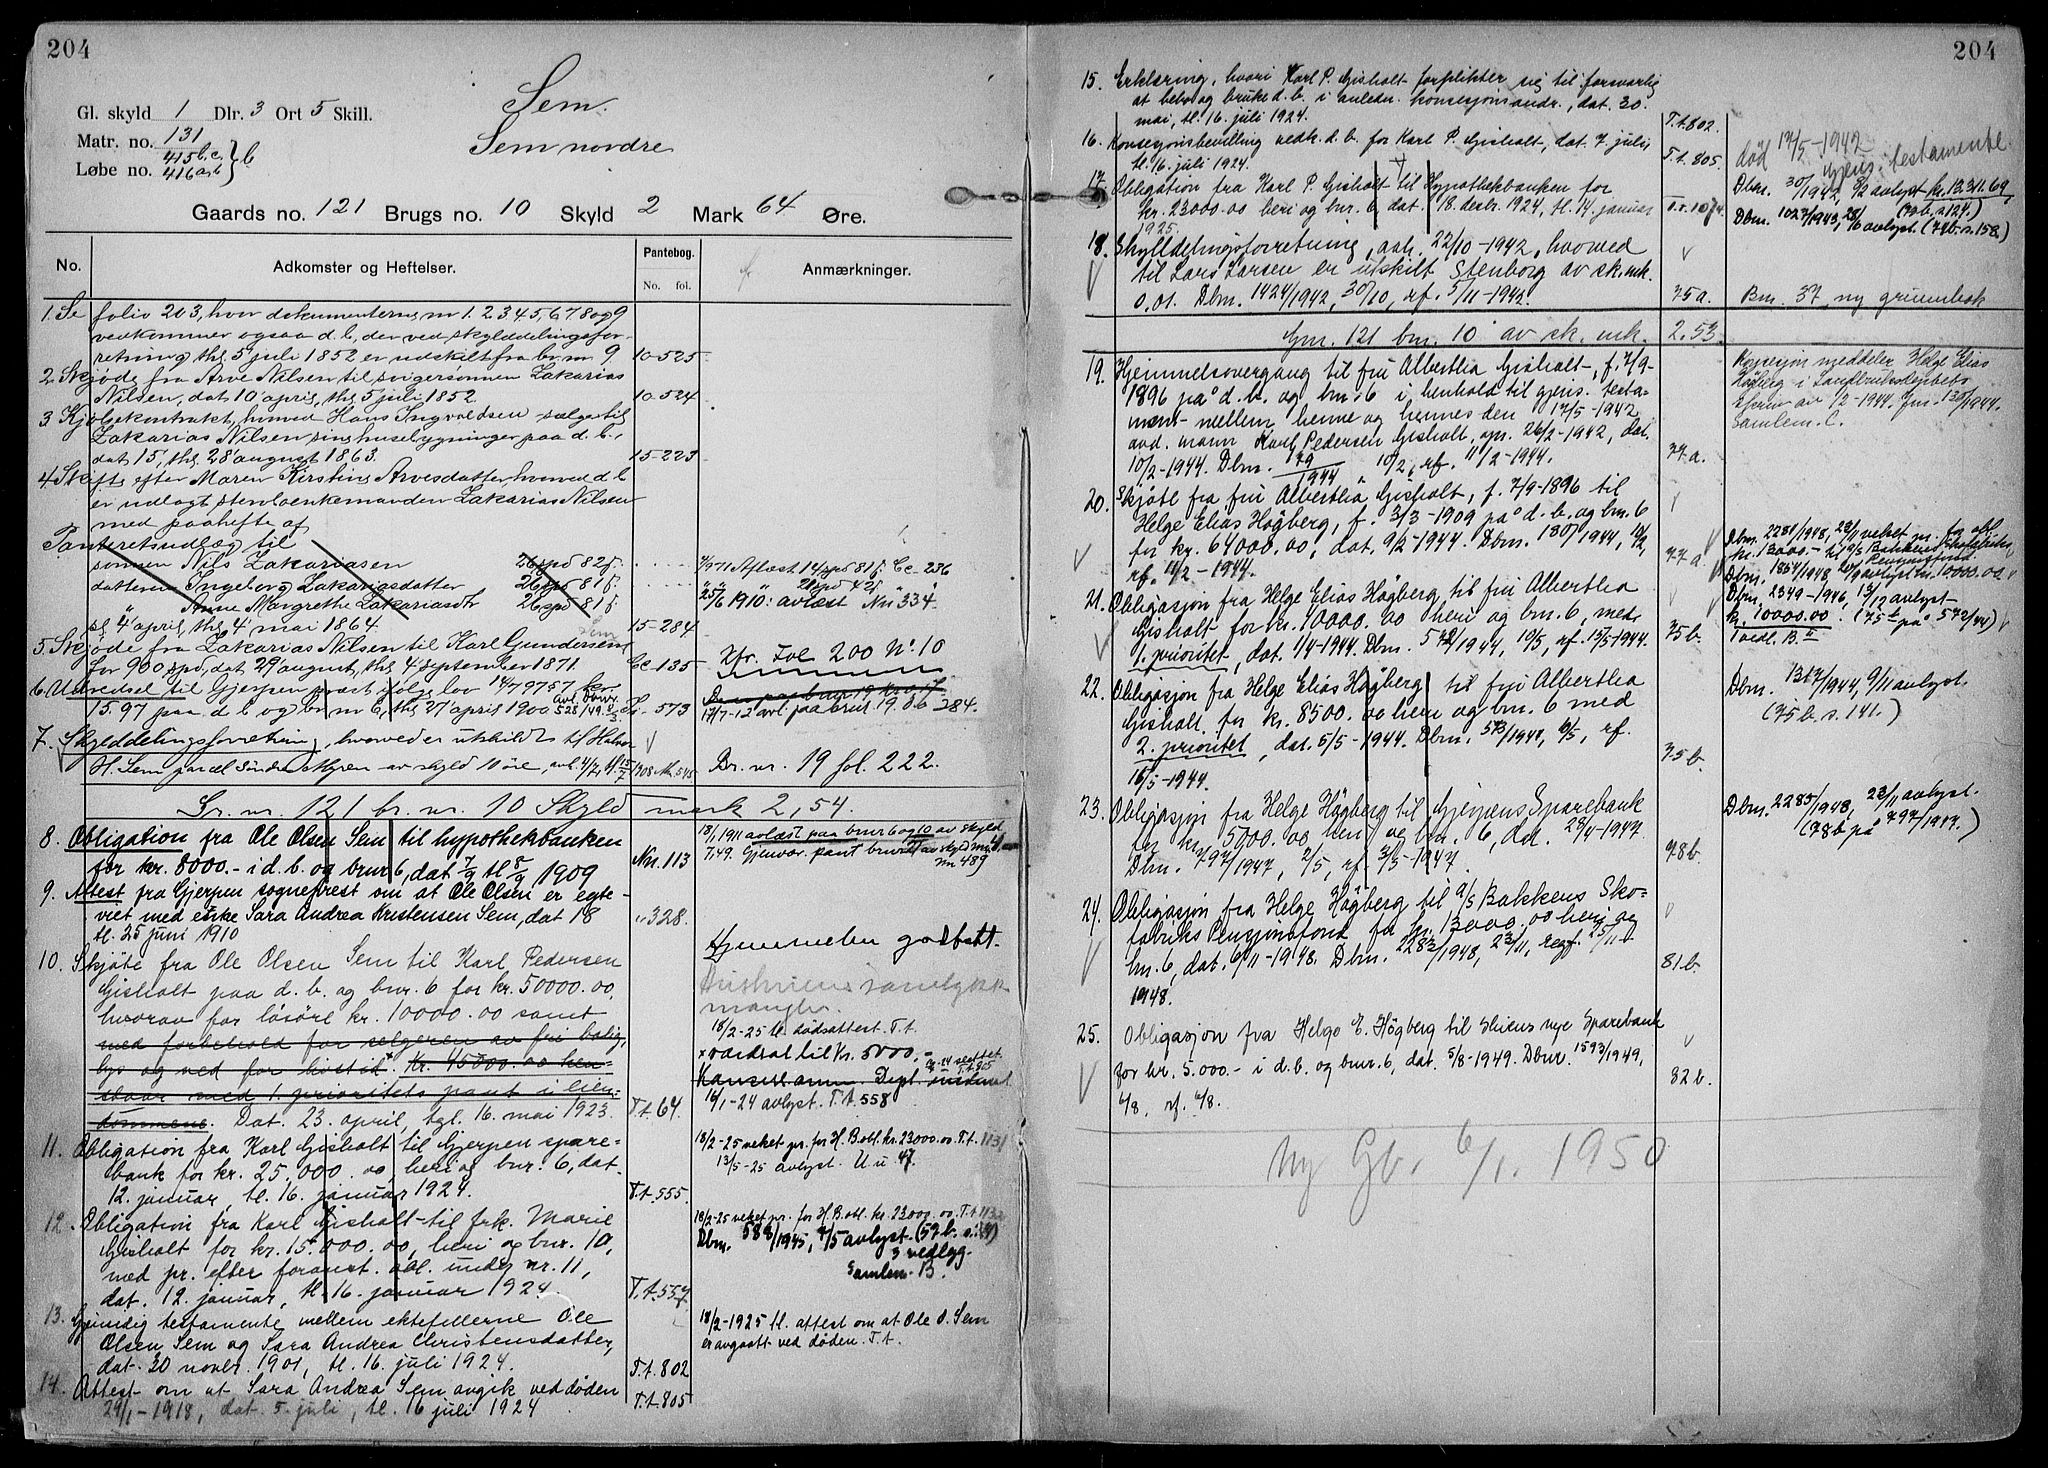 204
Gl. skyld 1 Dlr. 3 Ort 5 Skill.
Matr. no. 131
Løbe no. 415 b.c. 416 a.b } b
Sem.
Sem nordre
Gaards no. 121 Brugs no. 10 Skyld 2 Mark 64 Øre.
No. Adkomster og Heftelser. Pantebog. No. fol. Anmærkninger.
1. Se folio 203, hvor dokumenterne nr 1. 2 3 4 5. 6 7. 8 og 9
vedkommer ogsaa d. b., der ved skylddelingsfor-
retning thl. 5 juli 1852 er udskilt fra br. nr 9. 10-525
2. Skjøde fra Arve Nilsen til svigersønnen Zakarias
Nilsen, dat 10 april, thl 5 juli 1852 10-524
3 Kjøbekontrakt, hvorved Hans Ingvoldsen sælger til
Zakarias Nilsen sine husebygninger paa d. b.,
dat 15, thl 28 august 1863. 15-223
4. Skifte efter Maren Kirstine Arvesdatter, hvorved d. b
er udlagt stervboenkemanden Zakarias Nilsen
med paahefte af
Panteretsudlæg til
sønnen Nils Zakariasen 26 spd 82 s.
datteren Ingeborg Zakariasdatter 26 spd 81 s. 7/9 71 Aflæst 14 spd 81 s. Cc-236
" Anne Margrethe Zakariasdtr 26 spd 81 s. 25/6 1910: avlæst Nn 334.
sl. 4 april, thl. 4 mai 1864. 15-284
5. Skjøde fra Zakarias Nilsen til Karl Gundersen Sem
for 900 spd, dat 29 august, thl. 4 september 1871. Cc-135 Kfr. Fol 200 No 10
6. Udredsel til Gjerpen præst ifølge lov 14/7 97 57 kr
15. 97 paa d b og br nr 6, thl. 27 april 1900 573
17/7-12 avl. paa brnr 19. 0.6 - 384.
7. Skylddelingsforretning, hvorved er utskildt til Halvor
H. Sem parcel Søndre Myren av skyld 10 øre, avl. 4/7, tl. 15/7 1908 Mm. 545 Br. nr. 19 fol. 222.
Gr. nr. 121 br. nr. 10 Skyld mark 2,54.
8. Obligation fra Ole Olsen Sem til hypothekbanken
for kr. 8000.- i d. b. og brnr 6, dat 7/9 tl 8/9 1909 Nn. 113
18/1 1911 avlæst paa bnr 6 og 10 av skyld
Nn 489
9. Attest fra Gjerpen sogneprest om at Ole Olsen er egte-
viet med enke Sara Andrea Kristensen Sem, dat 18
tl. 25 juni 1910 " 328.
Hjemmelen godtatt.
10. Skjøte fra Ole Olsen Sem til Karl Pedersen
Gisholt paa d. b. og bnr. 6 for kr. 50000.00,
hvorav for løsøre kr. 10000.00 samt
med forbehold for selgeren av fri bolig,
lys og ved for livstid. Kr. 45000.00 hen-
staar med 1. prioritets pant i eien-
dommene. Dat. 23. april, tgl. 16. mai 1923. T.t. 64.
Hustruens samtykke
mangler.
18/2-25 tl. dødsattest. T.t.
x værdsat til Kr. 5000,-
16/1-24 avlyst. T.t 558
11. Obligation fra Karl Gisholt til Gjerpen spare-
bank for kr. 25.000.00 heri og bnr. 6, dat.
12. januar, tl. 16. januar 1924. T.t. 555.
18/2-25 veket pr. for H.B. obl. kr. 23000.00. T.t. 1131
13/5-25 avlyst. U.u. 47.
12. Obligation fra Karl Gisholt til frk. Marie
Gisholt for kr. 15.000.00, heri og bnr. 10,
med pr. efter foranst. obl. under nr. 11,
dat. 12. januar, tl. 16. januar 1924. T.t. 557
18/2-25 veket pr. for H.B. obl. kr. 23000.00. T.t. 1132
Dbm. 588/1945, 4/5 avlyst.
3 vedlegg.
Samlem. B.
13. Gjensidig testamente mellem ektefellerne Ole
Olsen Sem og Sara Andrea Christensdatter,
dat. 20 novbr. 1901, tl. 16. juli 1924. T.t. 802
18/2-1925 tl. attest om at Ole O. Sem
er avgaatt ved døden. T.t.
14. Attest om at Sara Andrea Sem avgik ved døden
29/1-1918, dat. 5. juli, tl. 16 juli 1924 T.t. 805
204
15. Erklæring, hvori Karl P. Gisholt forplikter sig til forsvarlig
at bebo og bruke d. b. i anledn. konsesjonsandr., dat. 30.
mai, tl. 16. juli 1924. T.t. 802.
16. Konsesjonsbevilling vedk. d. b. for Karl P. Gisholt, dat. 7. juli,
tl. 16. juli 1924. T.t. 805
død 17/5-1942
gjens. testamente.
17. Obligation fra Karl P. Gisholt til Hypothekbanken for
kr. 23000.00 heri og bnr. 6, dat. 18. desbr. 1924, tl. 14. januar
1925. T.t. 1074
Dbm. 30/1942, 9/2 avlyst kr. 12311.69
Dbm. 1027/1943, 28/6 avlyst. (74b. s. 158.)
18. Skylddelingsforretning, avh. 22/10-1942, hvorved
til Lars Larsen er utskilt Stenborg av sk. mk.
0.01. Dbm. 1424/1942, 30/10, rf. 5/11-1942. 75a. Bm. 37 ny grunnbok
Gm. 121 bm. 10 av sk. mk. 2.53.
19. Hjemmelsovergang til fru Albertha Gisholt, f. 7/9-
1896 på d. b. og bnr. 6 i henhold til gjens. testa-
ment mellem henne og hennes den 17/5-1942
avd. mann Karl Pedersen Gisholt, opr. 26/2-1942, dat.
10/2-1944. Dbm. 179/1944 10/2, rf. 11/2-1944. 77a.
Konsesjon meddeler Helge Elias
Högberg i Landbruksdepbebs
skriv av 1/2-1944. Jnr. 130/1944.
Samlem. C.
20. Skjøte fra fru Albertha Gisholt, f. 7/9-1896 til
Helge Elias Högberg, f. 3/3-1909 på d. b. og bm. 6
for kr. 64000.00, dat. 9/2-1944. Dbm. 180/1944, 10/2,
rf. 11/2-1944. 77a.
21. Obligasjon fra Helge Elias Högberg til fru Albertha
Gisholt for kr. 10000.00 heri og bm. 6, med
1. prioritet, dat. 1/4-1944. Dbm. 572/1944, 10/5, rf. 15/5-1944. 75b.
Dbm. 2281/1948, 23/11 veket pr. for obl.
kr. 13000.- til A/S Bakkens Skofabrikks
Pensjonsfond
Dbm. 2349-1946, 13/12 avlyst
kr. 10000.00. (75b på 572/44)
22. Obligasjon fra Helge Elias Högberg til fru Albertha
Gisholt for kr. 8500.00 heri og bm. 6 med
2. prioritet, dat. 5/5-1944. Dbm. 573/1944, 10/5, rf.
15/5-1944. 75b.
Dbm. 1317/1944, 9/11 avlyst.
(75b, s. 141.)
23. Obligasjon fra Helge Högberg til Gjerpens Sparebank
for kr. 5000.00 heri og bm. 6, dat. 28/4-1947.
Dbm. 797/1947, 2/5, rf. 3/5-1947. 78b.
Dbm. 2285/1948, 23/11 avlyst.
(78b på 797/1947.)
24. Obligasjon fra Helge Högberg til A/S Bakkens Sko-
fabriks Pensjonsfond for kr. 13000.00 heri og
bm. 6, dat. 6/11-1948. Dbm. 2282/1948, 23/11, regf. 25/11
1948. 81b.
25. Obligasjon fra Helge E. Högberg til Skiens nye Sparebank
for kr. 5.000.- i d. b. og bnr. 6, dat. 5/8-1949. Dbnr. 1593/1949,
6/8, rf. 6/8. 82b.
Ny Gb. 6/1. 1950